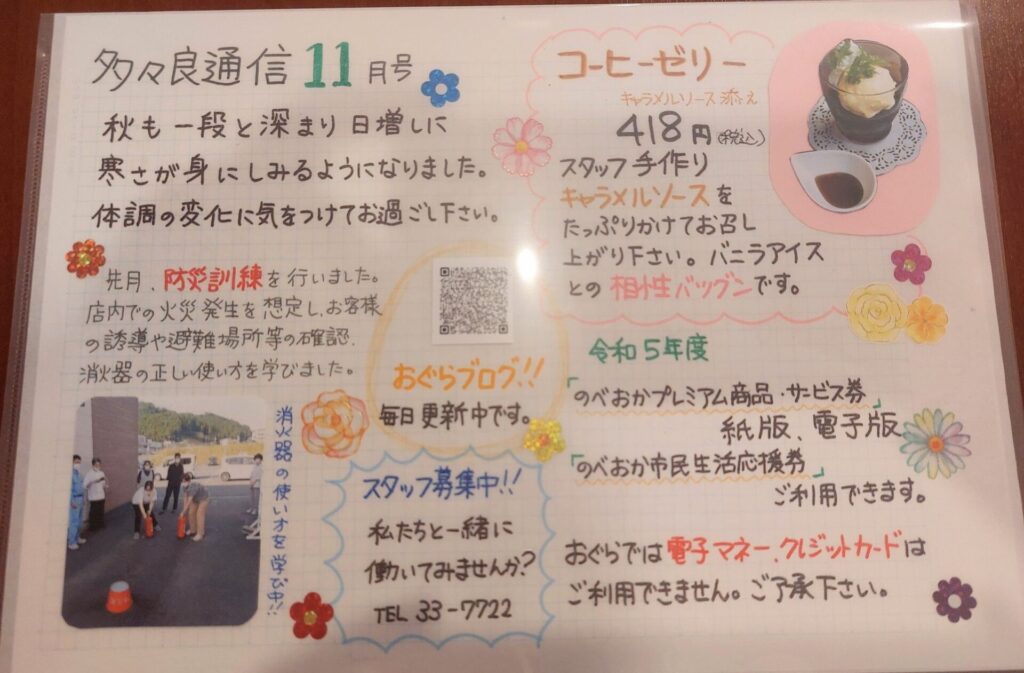 多々良通信 11月号
秋も一段と深まり日増しに
寒さが身にしみるようになりました。
体調の変化に気をつけてお過ごし下さい。
先月、防災訓練を行いました。
店内での火災発生を想定し、お客様
の誘導や避難場所等の確認、
消火器の正しい使い方を学びました。
消火器の使い方を学び中!!
おぐらブログ!!
毎日更新中です。
スタッフ募集中!!
私たちと一緒に
働いてみませんか?
TEL 33-7722
コーヒーゼリー
キャラメルソース添え
418円(税込)
スタッフ手作り
キャラメルソースを
たっぷりかけてお召し
上がり下さい。バニラアイス
との相性バツグンです。
令和5年度
「のべおかプレミアム商品・サービス券」
紙版、電子版
「のべおか市民生活応援券」
ご利用できます。
おぐらでは電子マネー、クレジットカードは
ご利用できません。ご了承下さい。